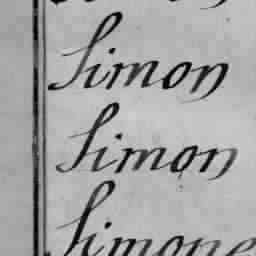 Simon
Simon
Simone